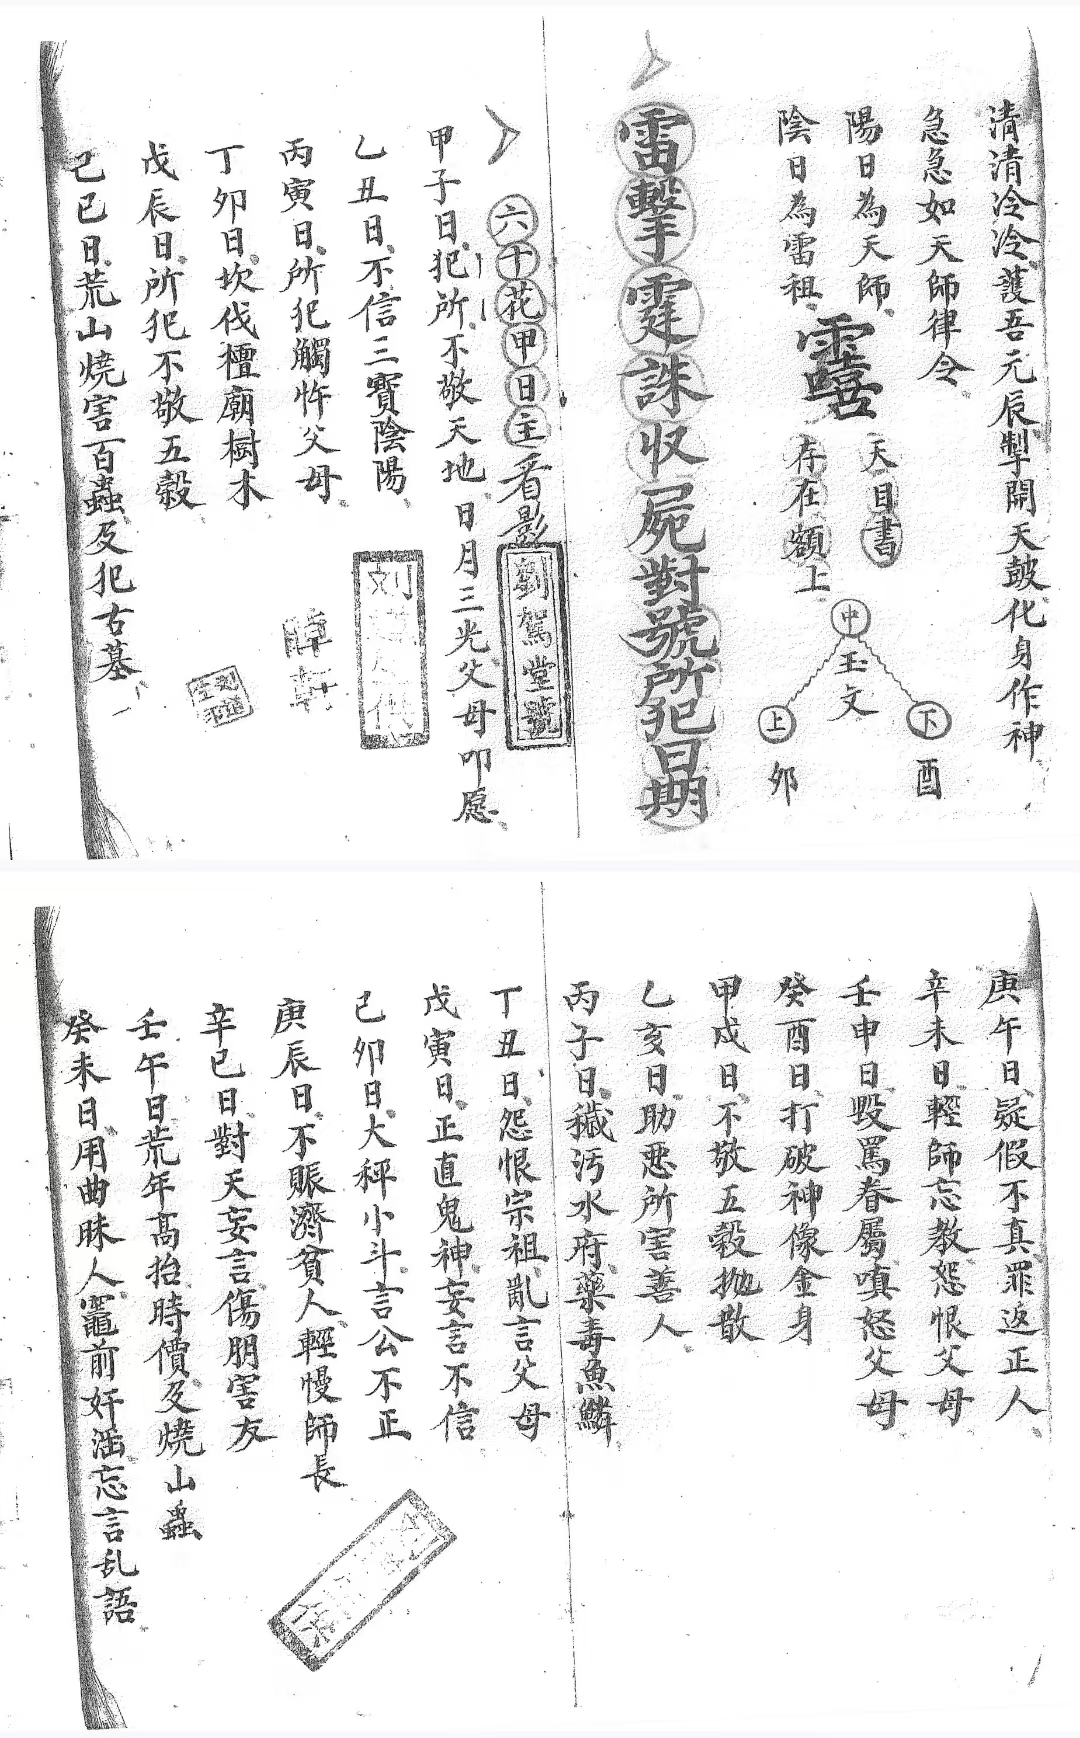 清清冷冷護吾元辰掣開天鼓化身作神
急急如天師律令
陽日為天師
陰日為雷祖
天目書
存在額上
中
玉文
上
卯
下
酉
雷擊霆誅收屍對號所犯日期
六十花甲日主看影
劉駕堂號
甲子日犯所不敬天地日月三光父母叩愿
乙丑日不信三寶陰陽
丙寅日所犯觸忤父母
丁卯日坎伐檀廟樹木
戊辰日所犯不敬五穀
己巳日荒山燒害百蟲及犯古墓
庚午日疑假不真罪返正人
辛未日輕師忘教怨恨父母
壬申日毀罵眷屬嗔怒父母
癸酉日打破神像金身
甲戌日不敬五穀拋散
乙亥日助恶所害善人
丙子日穢污水府藥毒魚鱗
丁丑日怨恨宗祖亂言父母
戊寅日正直鬼神妄言不信
己卯日大秤小斗言公不正
庚辰日不賑濟貧人輕慢師長
辛巳日對天妄言傷朋害友
壬午日荒年高抬時價及燒山蟲
癸未日用曲昧人竈前奸滛忘言乱語